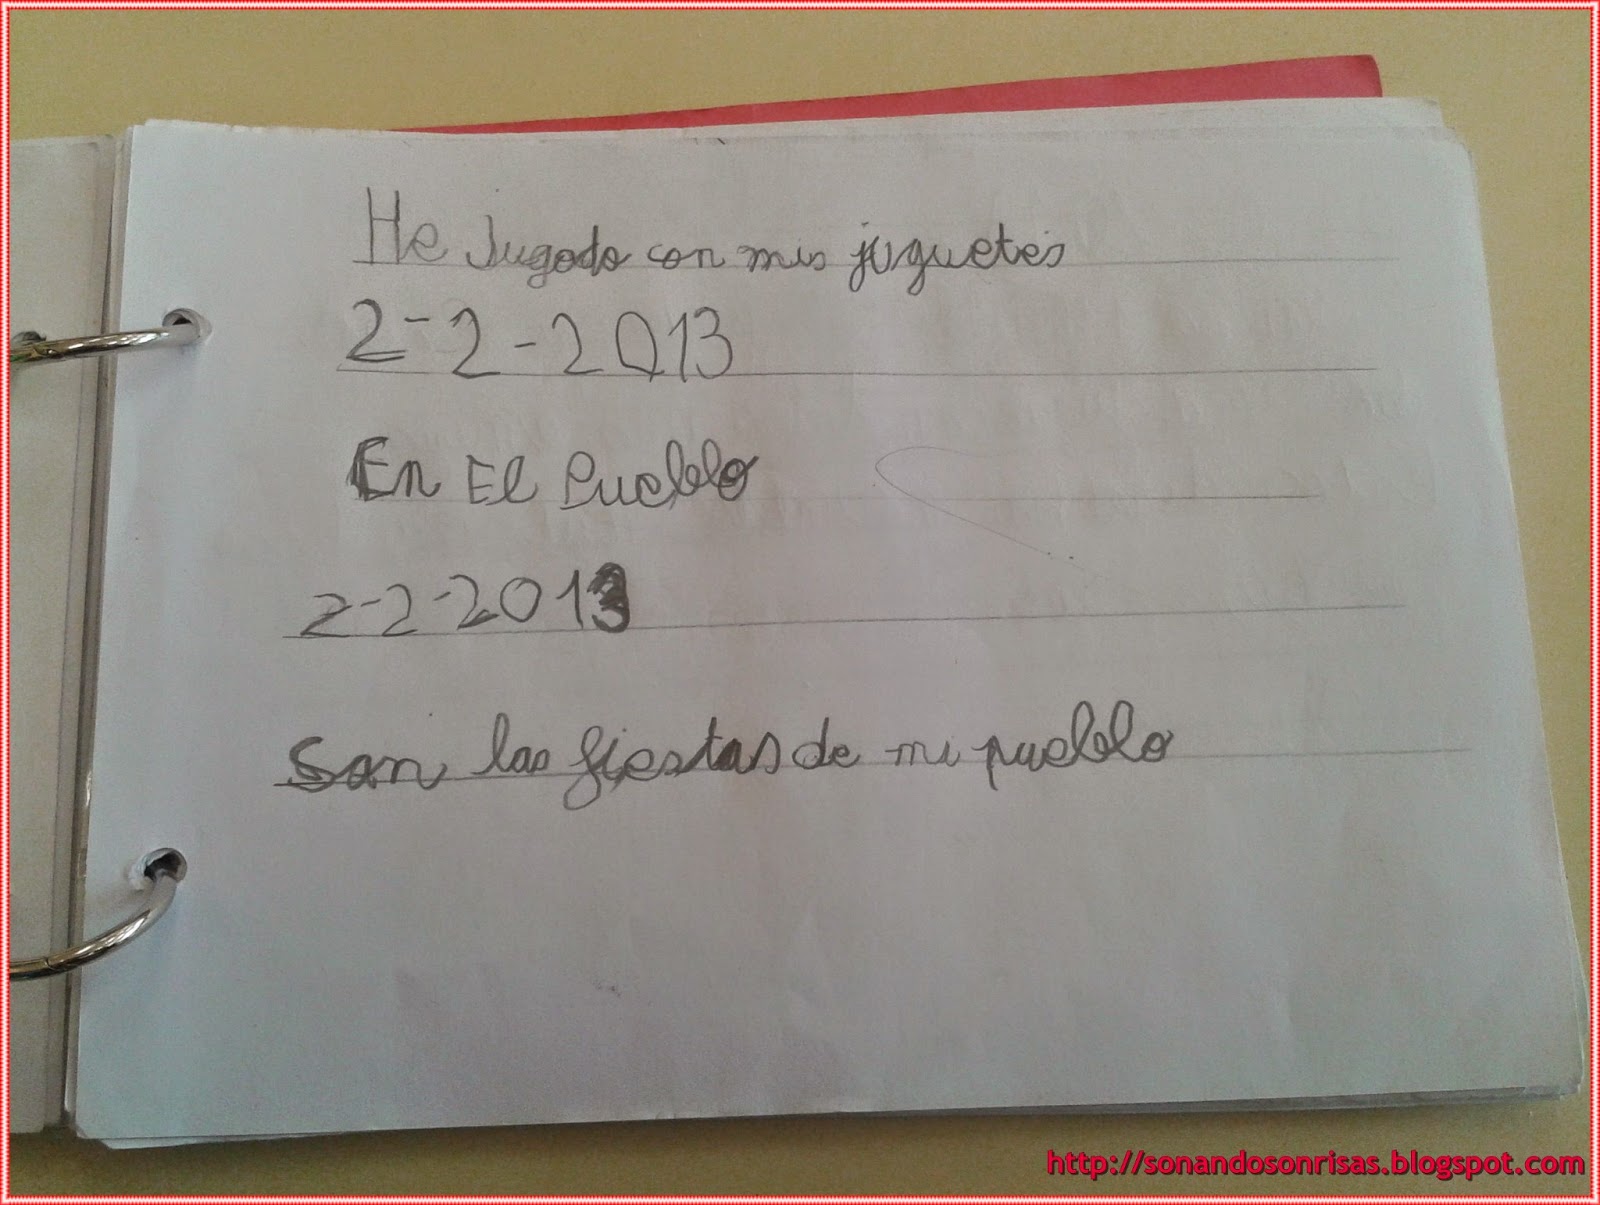 He Jugado con mis juguetes
2-2-2013
En El Pueblo
2-2-2013
Son las fiestas de mi pueblo
http://sonandosonrisas.blogspot.com